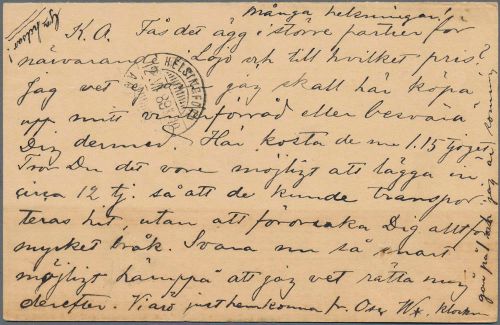 Många helsningar!
K. A. Fås det ägg i större partier för
närvarande i Lojo och till hvilket pris?
Jag vet ej jag skall här köpa
upp mitt vinterförråd eller besvära
Dig dermed. Här kosta de nu 1.15 tjoget
Tror Du det vore möjligt att lägga in
circa 12 tj. så att de kunde transpor-
teras hit, utan att förorsaka Dig alltför
mycket bråk. Svara nu så snart
möjligt härpå att jag vet rätta mig
derefter. Vi äro just hemkomna fr.
HELSINGFORS